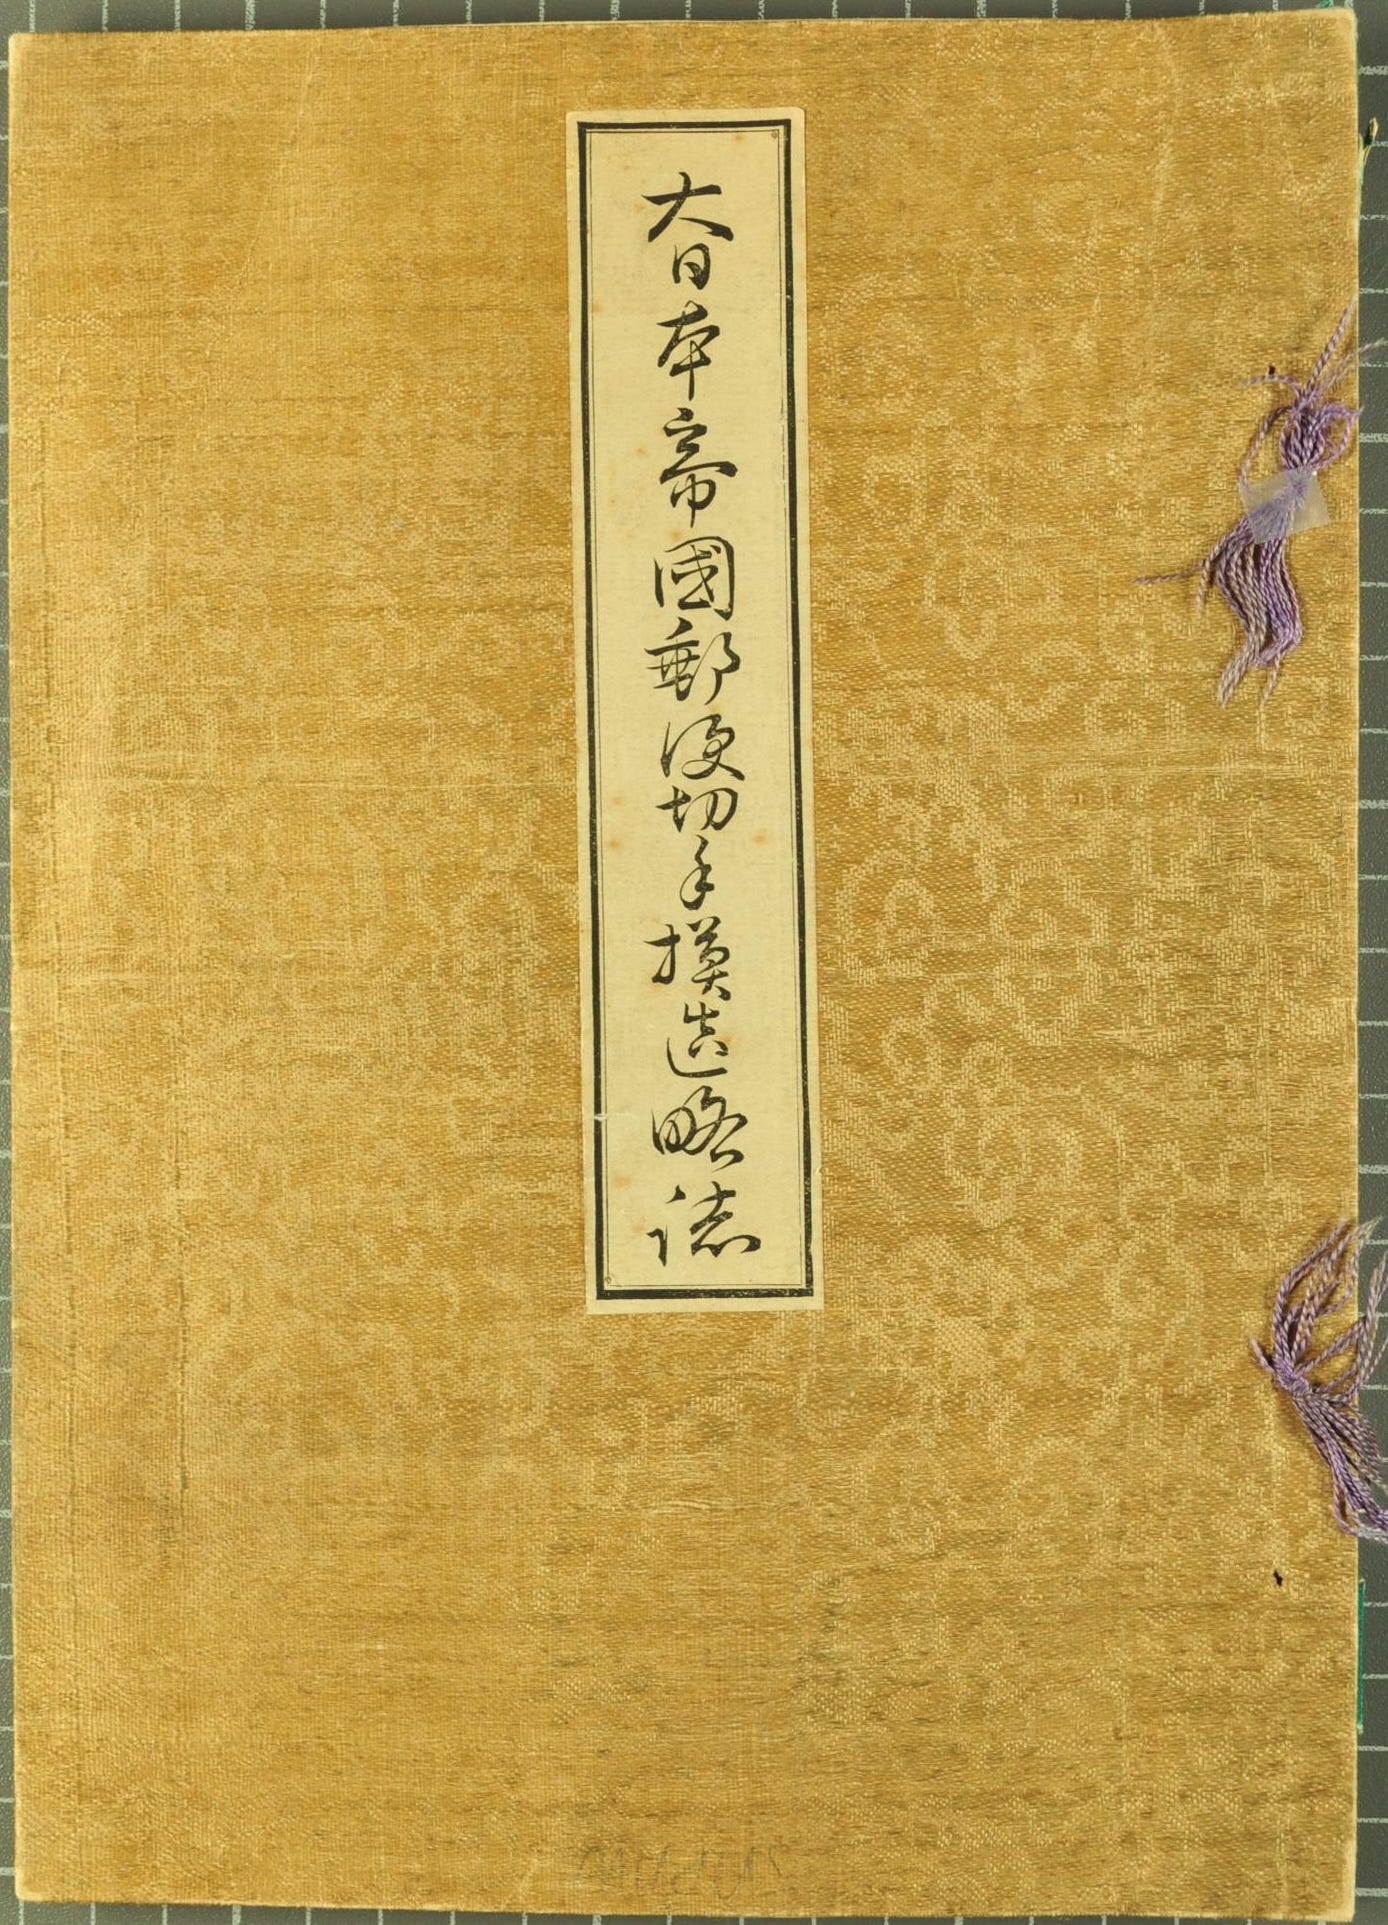 大日本帝國郵便切手摸造略誌